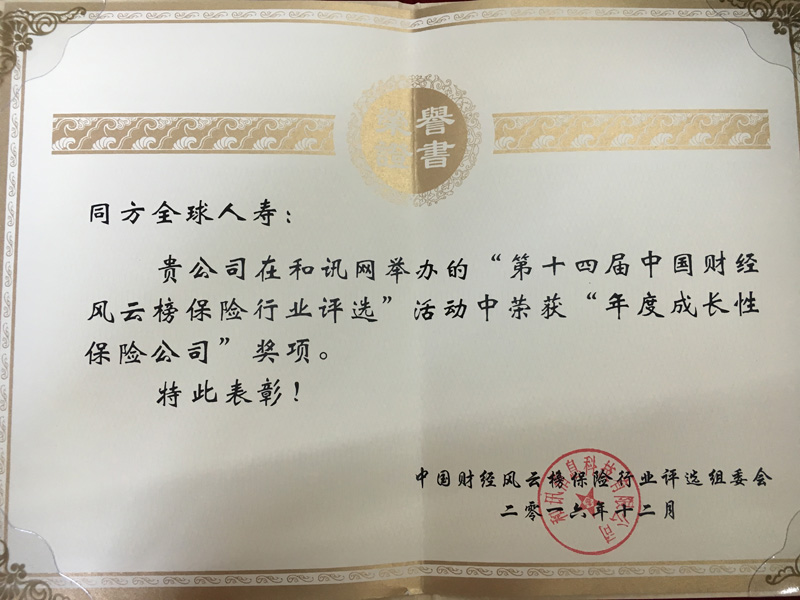 榮譽
證書
同方全球人寿：
贵公司在和讯网举办的“第十四届中国财经
风云榜保险行业评选”活动中荣获“年度成长性
保险公司”奖项。
特此表彰！
中国财经风云榜保险行业评选组委会
二零一六年十二月